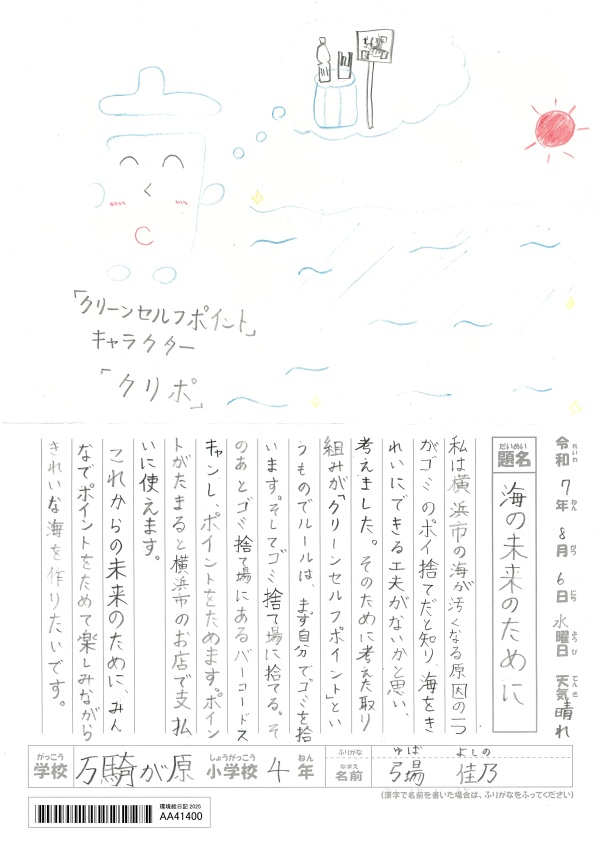 「クリーンセルフポイント」
キャラクター
「クリポ」
令和7年8月6日水曜日 天気晴れ
れいわ ねん がつ にち ようび てんき
だいめい
題名 海の未来のために
私は横浜市の海が汚くなる原因の一つ
がゴミのポイ捨てだと知り、海をき
れいにできる工夫がないかと思い、
考えました。そのために考えた取り
組みが「クリーンセルフポイント」とい
うものでルールは、まず自分でゴミを拾
います。そしてゴミ捨て場に捨てる。そ
のあとゴミ捨て場にあるバーコードス
キャンし、ポイントをためます。ポイン
トがたまると横浜市のお店で支払
いに使えます。
これからの未来のために、みん
なで。ポイントをためて楽しみながら
きれいな海を作りたいです。
がっこう しょうがっこう ねん ふりがな ゆば よしの
学校 万騎が原 小学校 4年 なまえ 名前 弓場 佳乃
(漢字で名前を書いた場合は、ふりがなをふってください)
環境絵日記 2025
AA41400